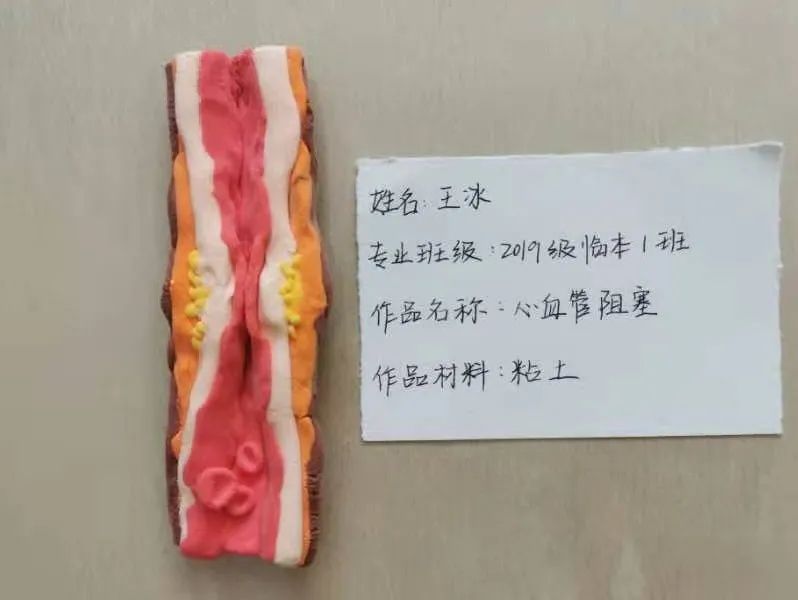 姓名：王冰
专业班级：2019级临本1班
作品名称：心血管阻塞
作品材料：粘土